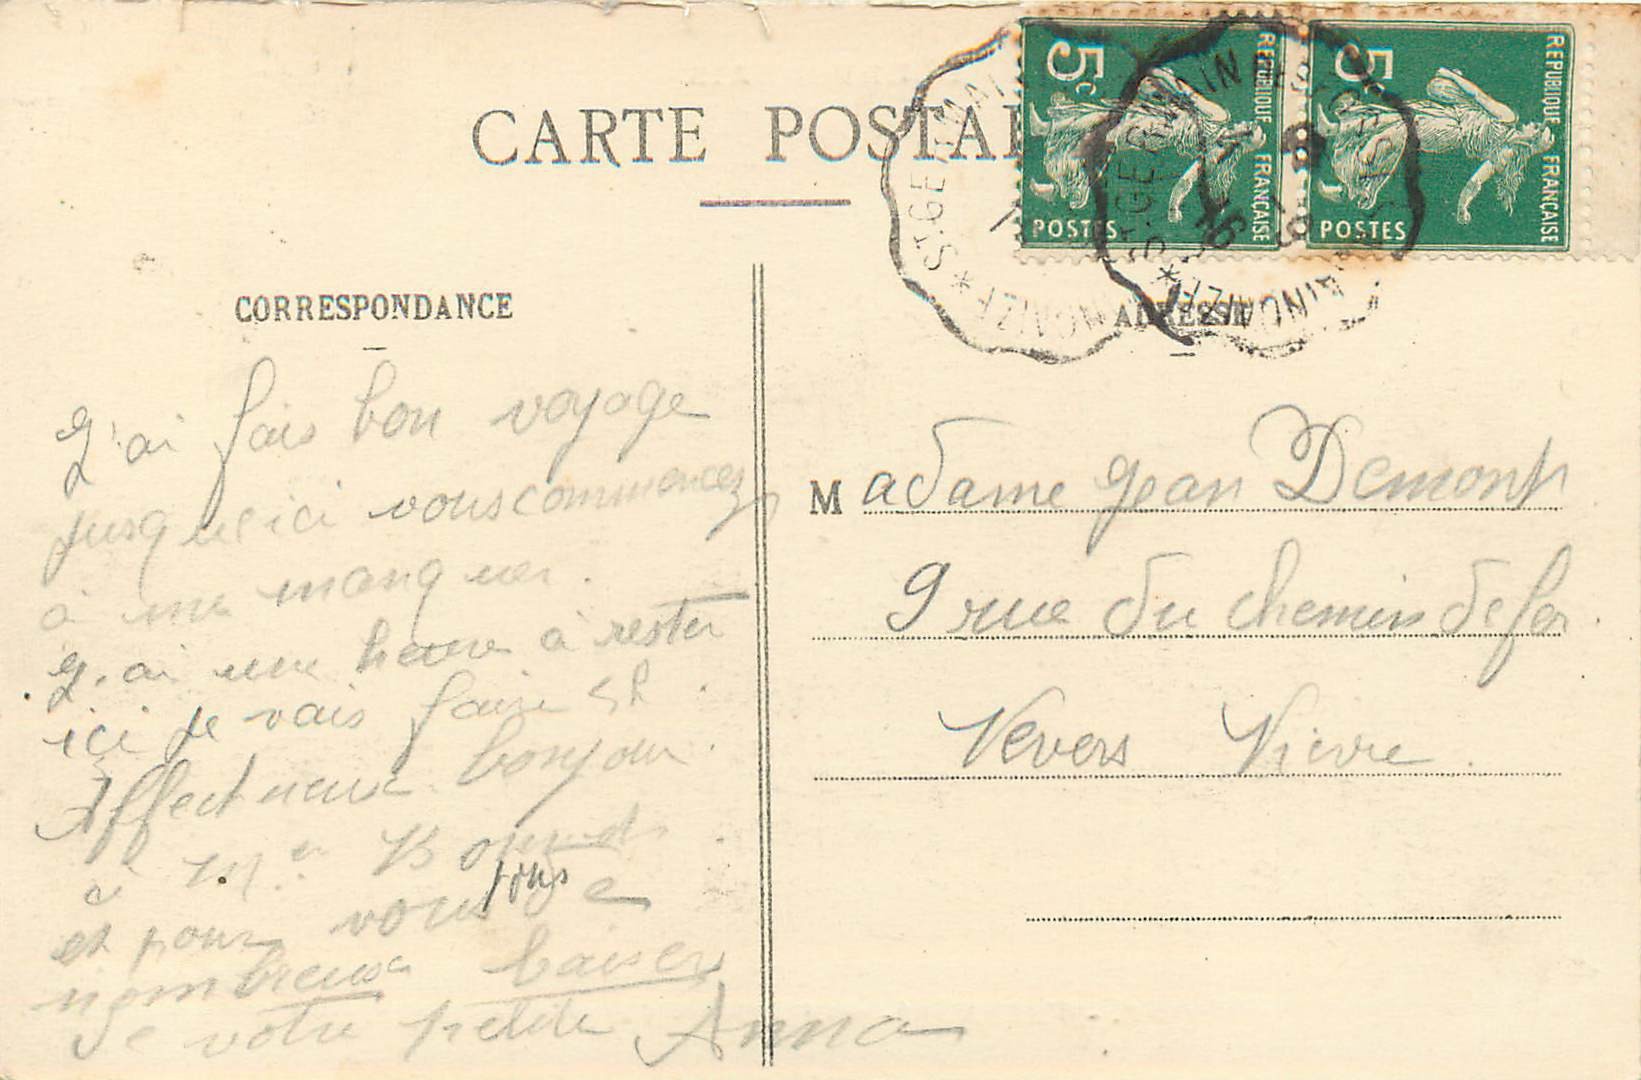 CARTE POSTAL
5c
REPUBLIQUE FRANÇAISE
POSTES
5c
REPUBLIQUE FRANÇAISE
POSTES
ST-GERMAIN
ST-GERMAIN DES FOSSES
18
CORRESPONDANCE
J'ai fais bon voyage
jusqu'ici vous commencez
à me manquer.
J'ai une heure à rester
ici je vais faire 5h.
Affectueux bonjour
à Mr
et pour vous tous de
nombreux baisers
de votre petite Anna
ADRESSE
Madame Jean Demont
9 rue du chemin de fer.
Nevers Nièvre.